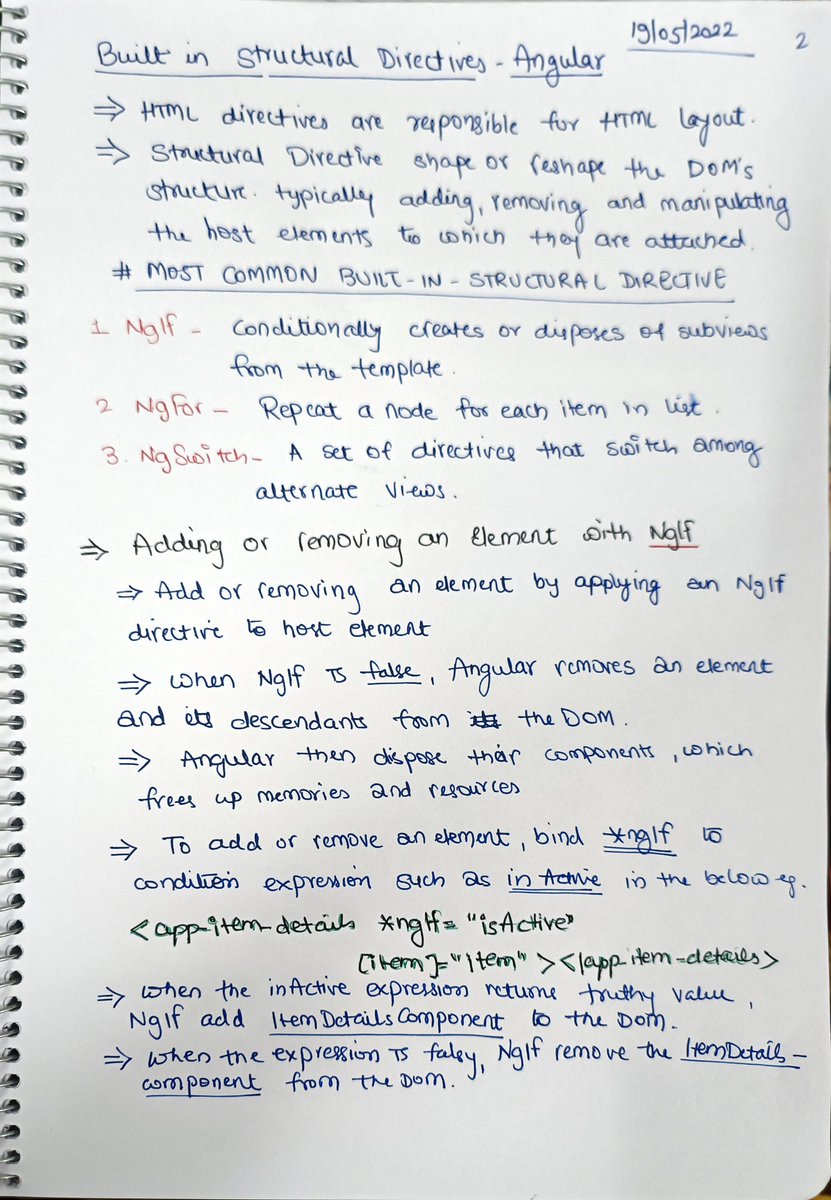 19/05/2022
2
Built in Structural Directives - Angular
⇒ HTML directives are responsible for HTML layout.
⇒ Structural Directive shape or reshape the DOM's
structure. typically adding, removing and manipulating
the host elements to which they are attached.
# MOST COMMON BUILT-IN-STRUCTURAL DIRECTIVE
1 NgIf - Conditionally creates or disposes of subviews
from the template.
2 NgFor - Repeat a node for each item in list.
3. NgSwitch - A set of directives that switch among
alternate views.
⇒ Adding or removing an element with NgIf
⇒ Add or removing an element by applying an NgIf
directive to host element
⇒ when NgIf is false, Angular removes an element
and its descendants from the DOM.
⇒ Angular then dispose their components, which
frees up memories and resources
⇒ To add or remove an element, bind *ngIf to
condition expression such as in Active in the below eg.
<app-item-details *ngIf="isActive"
[item]="item"></app-item-details>
⇒ when the inActive expression returns truthy value,
NgIf add ItemDetailsComponent to the DOM.
⇒ when the expression is falsy, NgIf remove the ItemDetails-
component from the DOM.